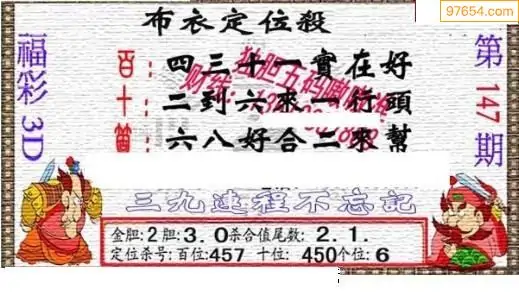 97654.com
布衣定位殺
福彩3D
第147期
百：四三十一實在好
十：二到六來一行頭
個：六八好合二來幫
三九進程不忘記
金胆:2胆:3.0杀合值尾数: 2.1.
定位杀号:百位:457 十位: 450个位:6